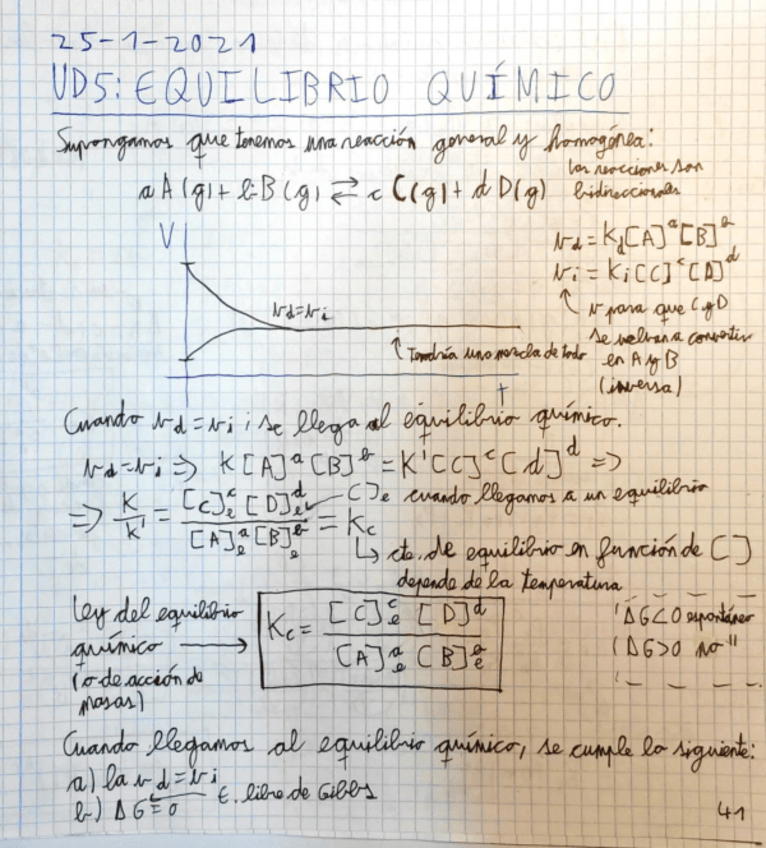 25-1-2021
UD5: EQUILIBRIO QUÍMICO
Supongamos que tenemos una reacción general y homogénea:
a A(g) + b B(g) ⇄ c C(g) + d D(g)
las reacciones son
bidireccionales
V
vd = Kd[A]^a [B]^b
vi = Ki[C]^c [D]^d
↑ v para que C y D
se vuelvan a convertir
en A y B
(inversa)
vd = vi
↑ Tendría una mezcla de todo
t
Cuando vd = vi ; se llega al equilibrio químico.
vd = vi ⇒ K[A]^a [B]^b = K'[C]^c [d]^d ⇒
⇒ K/K' = [C]e^c [D]e^d / [A]e^a [B]e^b = Kc
[ ]e cuando llegamos a un equilibrio
↳ cte. de equilibrio en función de [ ]
depende de la temperatura
Ley del equilibrio
químico →
(o de acción de
masas)
Kc = [C]e^c [D]^d / [A]e^a [B]e^b
ΔG<0 espontáneo
ΔG>0 no "
Cuando llegamos al equilibrio químico, se cumple lo siguiente:
a) la vd = vi
b) ΔG = 0 ← E. libre de Gibbs
41